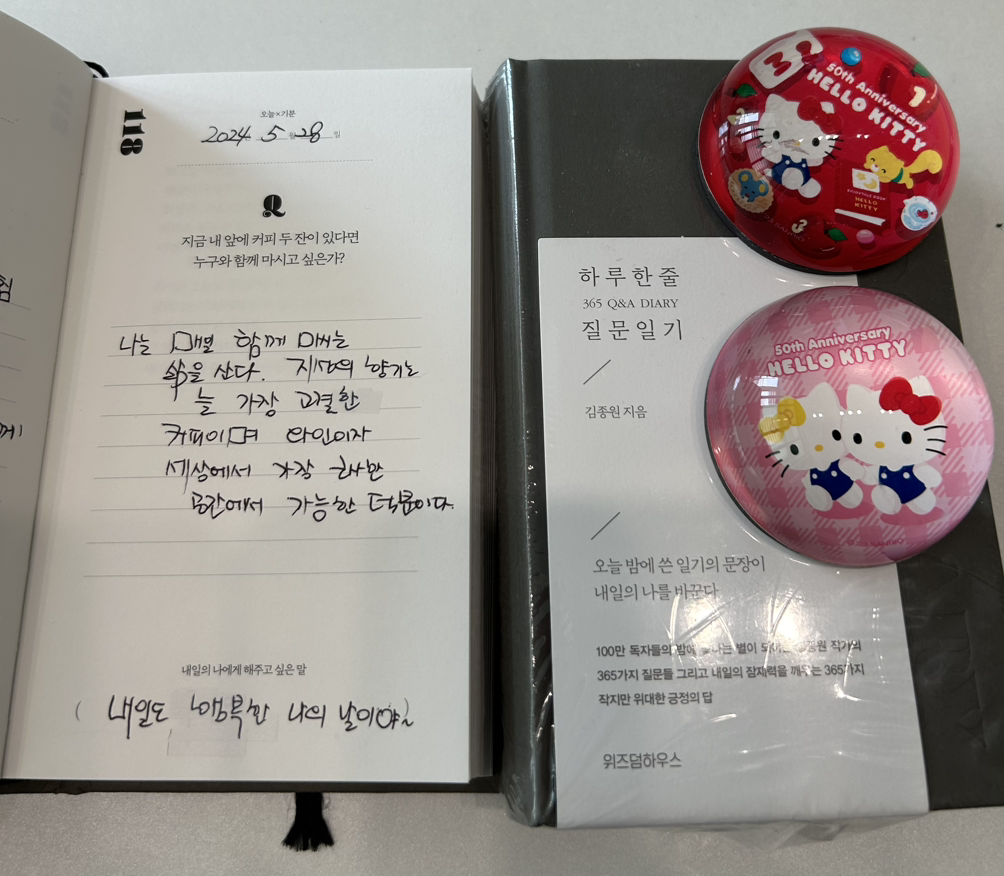 118
오늘×기분
2024 5 월 28 일
Q
지금 내 앞에 커피 두 잔이 있다면
누구와 함께 마시고 싶은가?
나는 매번 함께 매는
삶을 산다. 지성의 향기는
늘 가장 고결한
커피이며 와인이자
세상에서 가장 근사한
공간에서 가능한 덕분이다.
내일의 나에게 해주고 싶은 말
( 내일도 행복한 나의 날이야~
50th Anniversary
HELLO KITTY
1
3
HELLO
KITTY
하루한줄
365 Q&A DIARY
질문일기
김종원 지음
50th Anniversary
HELLO KITTY
오늘 밤에 쓴 일기의 문장이
내일의 나를 바꾼다
100만 독자들의 밤에 빛나는 별이 되어준 김종원 작가의
365가지 질문들 그리고 내일의 잠재력을 깨우는 365가지
작지만 위대한 긍정의 답
위즈덤하우스